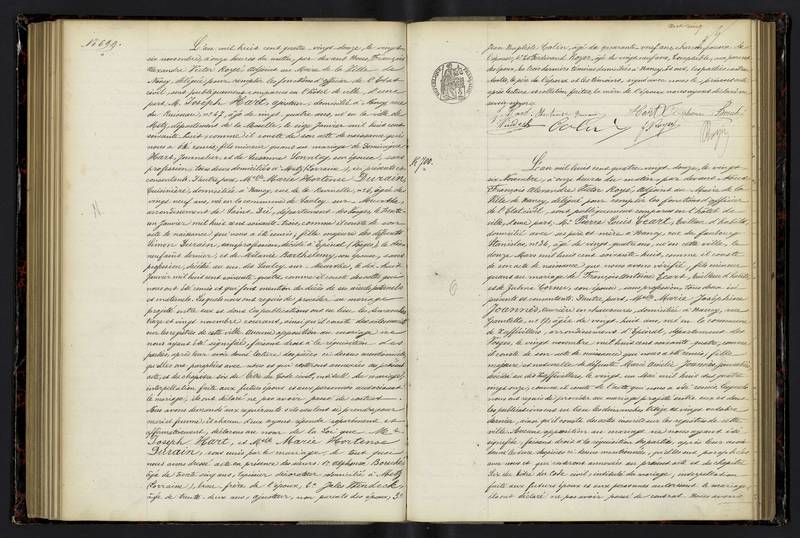 N° 699.
L'an mil huit cent quatre vingt douze, le vingt
six novembre, à onze heures du matin, par devant Nous, François
Alexandre Victor Royé, adjoint au Maire de la Ville de
Nancy, délégué pour remplir les fonctions d'officier de l'Etat
civil, sont publiquement comparus en l'hôtel de ville, d'une
part, M. Joseph Hart, ajusteur, domicilié à Nancy, rue
du Ruisseau, n° 47, âgé de vingt quatre ans, né en la ville de
Metz, département de la Moselle, le vingt Janvier mil huit cent
soixante huit, comme il conste de son acte de naissance qui
nous a été remis, fils mineur quant au mariage de Dominique
Hart, Journalier, et de Susanne son épouse, sans
profession, tous deux domiciliés à Metz (Lorraine), ici présents et
consentants. D'autre part, Melle Marie Hortense Durain
Cuisinière, domiciliée à Nancy, rue de la n° 6, âgée de
vingt neuf ans, née en la commune de Saulcy sur Meurthe,
arrondissement de Saint Dié, département des Vosges, le trente
un Janvier mil huit cent soixante trois, comme il conste de son
acte de naissance qui nous a été remis, fille majeure des défunts
Simon Durain, sans profession, décédé à Epinal (Vosges) le dix
neuf août dernier, et de Mélanie Barthélemy, son épouse, sans
profession, décédée au dit Saulcy sur Meurthe, le dix huit
Janvier mil huit cent soixante quatre, comme il conste des actes qui
nous ont été remis et qui font mention du décès de ses aïeuls paternels
et maternels. Lesquels nous ont requis de procéder au mariage
projeté entre eux et dont les publications ont eu lieu les dimanches
treize et vingt novembre courant, ainsi qu'il conste des actes inscrits
sur les registres de cette ville. Aucune opposition au mariage ne
nous ayant été signifiée, faisant droit à la réquisition des
parties, après leur avoir donné lecture des pièces ci dessus mentionnées,
qu'elles ont paraphées avec nous et qui resteront annexées au présent
acte, et du chapitre six du Titre du Code civil, intitulé du mariage,
interpellation faite aux futurs époux et aux personnes autorisant
le mariage, ils ont déclaré ne pas avoir passé de contrat.
Nous avons demandé aux requérants s'ils veulent se prendre pour
mari et femme, et chacun d'eux ayant répondu séparément et
affirmativement, déclarons au nom de la Loi que M.
Joseph Hart, et Melle Marie Hortense
Durain, sont unis par le mariage, de tout quoi
nous avons dressé acte en présence des sieurs 1° Alphonse Bouché
âgé de trente cinq ans, peintre décorateur, domicilié à Metz
(Lorraine), beau-frère de l'époux, 2° Jules Windeck,
âgé de trente deux ans, ajusteur, non parents des époux, 3°
Jean Baptiste Colin, âgé de quarante neuf ans,
l'épouse, 4° Ferdinand Royer, âgé de vingt neuf ans,
les trois derniers témoins domiciliés à Nancy.
la mère de l'époux et les témoins, signé avec nous le présent acte
après lecture et collation faites, le père de l'époux nous ayant déclaré ne
savoir signer.
J. Hart Hortense Durain Hart Alphonse Bouché
Windeck Colin F. Royer Royé
N° 700.
L'an mil huit cent quatre vingt douze, le vingt
six Novembre, à onze heures du matin, par devant Nous
François Alexandre Victor Royé, adjoint au Maire de la
Ville de Nancy, délégué pour remplir les fonctions d'officier
de l'Etat civil, sont publiquement comparus en l'hôtel de
ville, d'une part, M. Pierre Louis Ecart, tailleur d'habits,
domicilié avec ses père et mère à Nancy, rue du faubourg
Stanislas, n° 36, âgé de vingt quatre ans, né en cette ville, le
douze Mars mil huit cent soixante huit, comme il conste
de son acte de naissance que nous avons vérifié, fils mineur
quant au mariage de François Antoine Ecart, tailleur d'habits,
et de Justine Cornu, son épouse, sans profession, tous deux ici
présents et consentants. D'autre part, Melle Marie Joséphine
Joannès, domiciliée à Nancy, rue
n° 17, âgée de vingt huit ans, née en la commune
d'Uzéfaing, arrondissement d'Epinal, département des
Vosges, le vingt novembre mil huit cent soixante quatre, comme
il conste de son acte de naissance qui nous a été remis, fille
majeure et naturelle de défunte Marie Joannès, journalière,
décédée au dit le vingt un Mai mil huit cent quatre
vingt onze, comme il conste de l'acte qui nous a été remis. Lesquels
nous ont requis de procéder au mariage projeté entre eux et dont
les publications ont eu lieu les dimanches treize et vingt
dernier, ainsi qu'il conste des actes inscrits sur les registres de cette
ville. Aucune opposition au mariage ne nous ayant été
signifiée, faisant droit à la réquisition des parties, après leur avoir
donné lecture des pièces ci dessus mentionnées, qu'elles ont paraphées
avec nous et qui resteront annexées au présent acte et du chapitre
six du Titre du Code civil intitulé du mariage, interpellation
faite aux futurs époux et aux personnes autorisant le mariage,
ils ont déclaré ne pas avoir passé de contrat. Nous avons